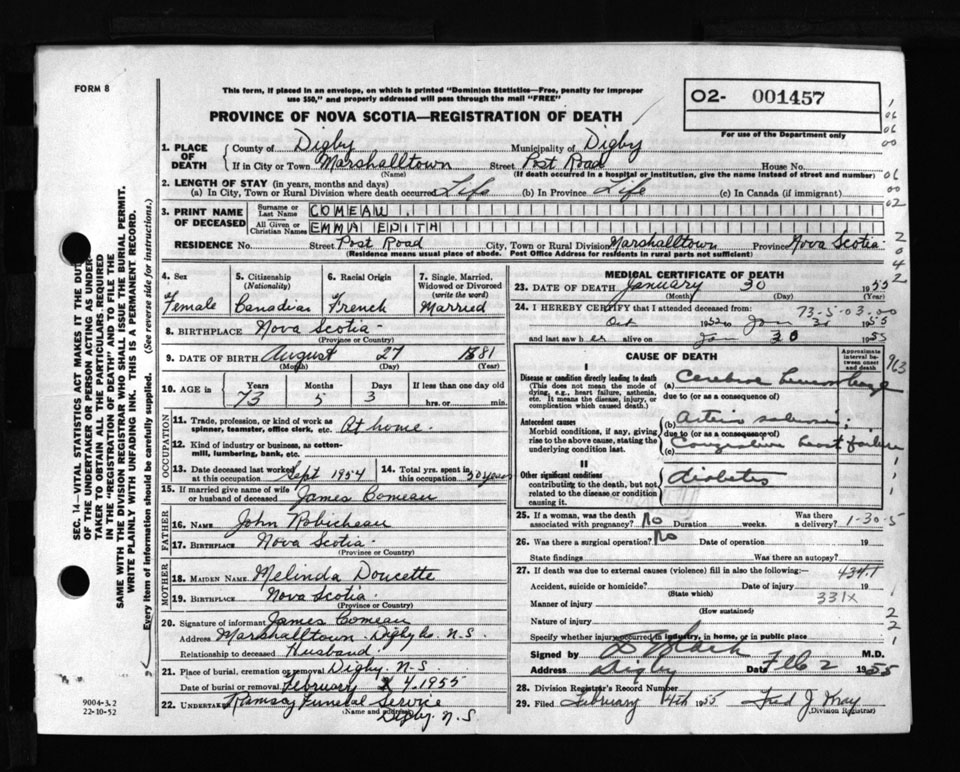 FORM 8
This form, if placed in an envelope, on which is printed "Dominion Statistics—Free, penalty for improper
use $50," and properly addressed will pass through the mail "FREE"
PROVINCE OF NOVA SCOTIA—REGISTRATION OF DEATH
O2- 001457
For use of the Department only
1. PLACE OF DEATH County of Digby Municipality of Digby
If in City or Town Marshalltown Street Post Road House No.
(Name) (If death occurred in a hospital or institution, give the name instead of street and number)
2. LENGTH OF STAY (in years, months and days)
(a) In City, Town or Rural Division where death occurred Life (b) In Province Life (c) In Canada (if immigrant)
3. PRINT NAME OF DECEASED Surname or Last Name COMEAU
All Given or Christian Names EMMA EDITH
RESIDENCE No. Street Post Road City, Town or Rural Division Marshalltown Province Nova Scotia
(Residence means usual place of abode. Post Office Address for residents in rural parts not sufficient)
4. Sex 5. Citizenship (Nationality) 6. Racial Origin 7. Single, Married, Widowed or Divorced (write the word)
Female Canadian French Married
8. BIRTHPLACE Nova Scotia
(Province or Country)
9. DATE OF BIRTH August 27 1881
(Month) (Day)
10. AGE in Years Months Days If less than one day old
73 5 3 hrs. or min.
OCCUPATION
11. Trade, profession, or kind of work as spinner, teamster, office clerk, etc. At home
12. Kind of industry or business, as cotton-mill, lumbering, bank, etc.
13. Date deceased last worked at this occupation Sept 1954 14. Total yrs. spent in this occupation 50 years
15. If married give name of wife or husband of deceased James Comeau
FATHER
16. NAME John Robicheau
17. BIRTHPLACE Nova Scotia
(Province or Country)
MOTHER
18. MAIDEN NAME Melinda Doucette
19. BIRTHPLACE Nova Scotia
(Province or Country)
20. Signature of informant James Comeau
Address Marshalltown Digby Co. N.S.
Relationship to deceased Husband
21. Place of burial, cremation or removal Digby, N.S.
Date of burial or removal February 4, 1955
22. UNDERTAKER Ramsay Funeral Service
(Name and address) Digby, N.S
MEDICAL CERTIFICATE OF DEATH
23. DATE OF DEATH January 30 1955
(Month) (Day) (Year)
73-5-03-00
24. I HEREBY CERTIFY that I attended deceased from:
Oct to Jan 30 1955
and last saw her alive on Jan 30 1955
CAUSE OF DEATH
Approximate interval between onset and death
I
Disease or condition directly leading to death (a) Cerebral hemorrhage
(This does not mean the mode of dying, e.g., heart failure, asthenia, etc. It means the disease, injury, or complication which caused death.)
due to (or as a consequence of)
Antecedent causes (b)
Morbid conditions, if any, giving rise to the above cause, stating the underlying condition last.
due to (or as a consequence of)
(c) Congestive heart failure
II
Other significant conditions contributing to the death, but not related to the disease or condition causing it.
diabetes
963
25. If a woman, was the death associated with pregnancy? No Duration weeks. Was there a delivery? 1-30-5
26. Was there a surgical operation? No Date of operation 19
State findings Was there an autopsy?
27. If death was due to external causes (violence) fill in also the following:—
434.1
Accident, suicide or homicide? Date of injury 19
(State which)
331X
Manner of injury
(How sustained)
Nature of injury
Specify whether injury occurred in industry, in home, or in public place
Signed by M.D.
Address Digby Date Feb 2 1955
28. Division Registrar's Record Number
29. Filed February 14th 1955 Fred J. Kray
(Division Registrar)
SEC. 14—VITAL STATISTICS ACT MAKES IT THE DUTY
OF THE UNDERTAKER OR PERSON ACTING AS UNDER-
TAKER TO OBTAIN ALL THE PARTICULARS REQUIRED
IN THE "REGISTRATION OF DEATH" AND TO FILE THE
SAME WITH THE DIVISION REGISTRAR WHO SHALL ISSUE THE BURIAL PERMIT.
WRITE PLAINLY WITH UNFADING INK. THIS IS A PERMANENT RECORD.
Every item of information should be carefully supplied. (See reverse side for instructions.)
9004-3.2
22-10-52